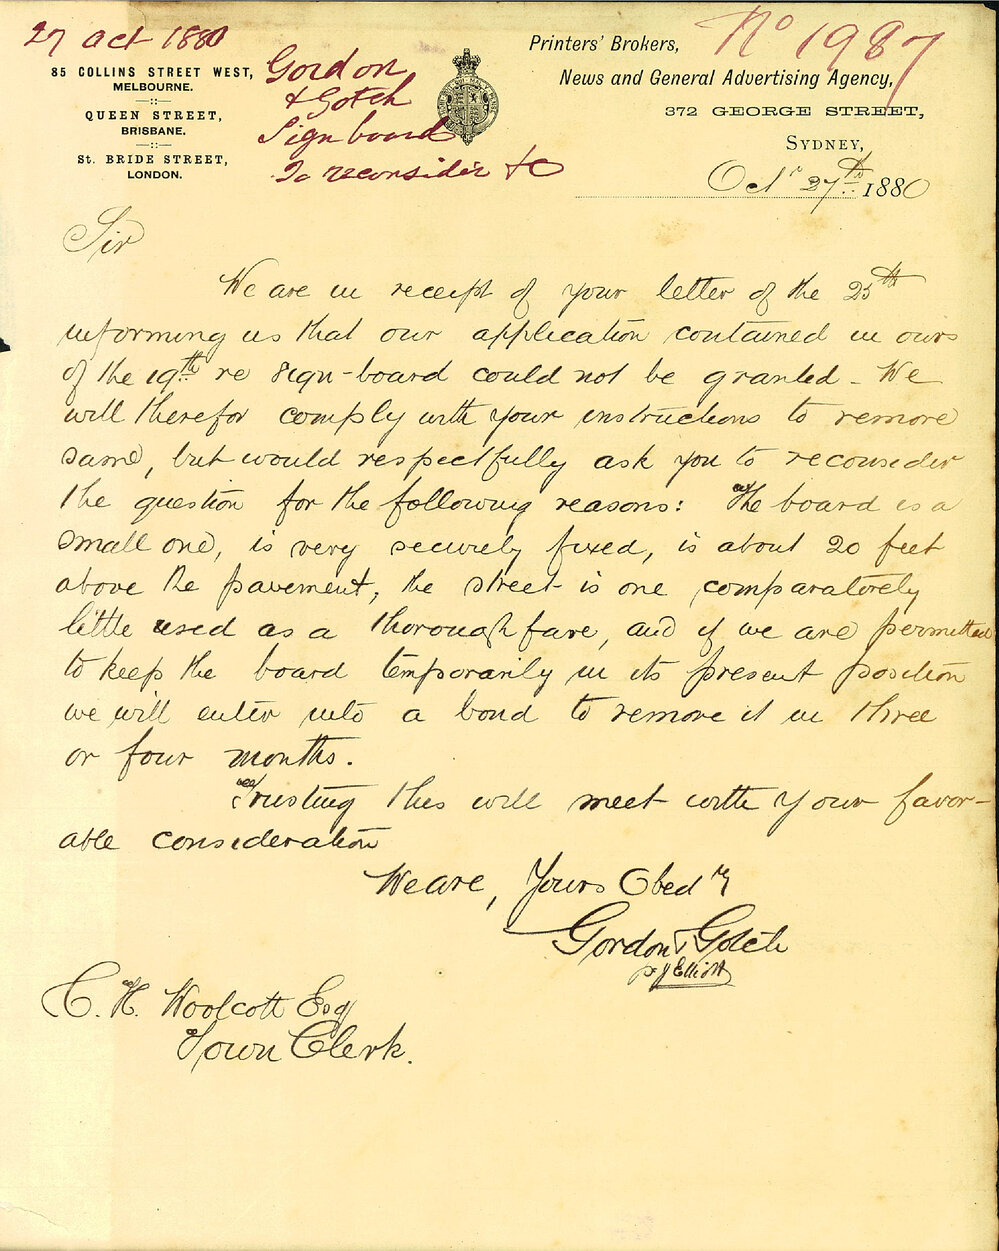 27 Oct 1880
85 COLLINS STREET WEST,
MELBOURNE.
QUEEN STREET,
BRISBANE.
St. BRIDE STREET,
LONDON.
Gordon
& Gotch
Sign board
To reconsider &c
Printers' Brokers,
News and General Advertising Agency,
372 GEORGE STREET,
SYDNEY,
No 1987
Oct 27th 1880
Sir
We are in receipt of your letter of the 25th
informing us that our application contained in ours
of the 19th re sign-board could not be granted - We
will therefor comply with your instructions to remove
same, but would respectfully ask you to reconsider
the question for the following reasons: The board is a
small one, is very securely fixed, is about 20 feet
above the pavement, the street is one comparatively
little used as a thoroughfare, and if we are permitted
to keep the board temporarily in its present position
we will enter into a bond to remove it in three
or four months.
Trusting this will meet with your favor-
able consideration
We are, Yours Obedly
Gordon & Gotch
pr J Elliott
C. H. Woolcott Esq
Town Clerk.